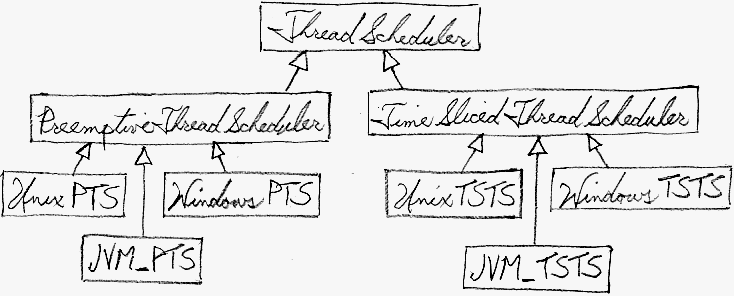 ThreadScheduler
PreemptiveThreadScheduler
TimeSlicedThreadScheduler
UnixPTS
WindowsPTS
UnixTSTS
WindowsTSTS
JVM_PTS
JVM_TSTS